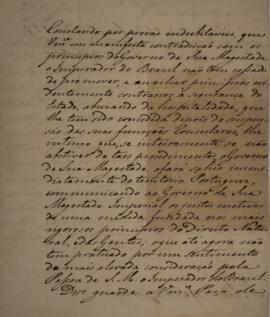 Constando por provas indubitaveis, que
Vm.ce em manifesta contradicção com os
principios do Governo de Sua Magestade
o Imperador do Brazil não tem cessado
de promover, e auxiliar principios evi-
dentemente contrarios á segurança do
Estado, abuzando da hospitalidade, que
lhe tem sido concedida depois da suspen-
são das suas funcções Consulares, lhe
intimo que, se inteiramente se não
abstiver de taes procedimentos, o Governo
de Sua Magestade o fará sahir imme-
diatamente do territorio Portuguez,
communicando ao Governo de Sua
Magestade Imperial os justos motivos
de uma medida fundada nos mais
rigorosos principios do Direito Natu-
ral, e das Gentes; e que até agora não
tem praticado por um sentimento
da mais elevada consideração pela
Pessoa de S. M. o Imperador do Brazil.
Deos guarde a Vm.ce Paço de